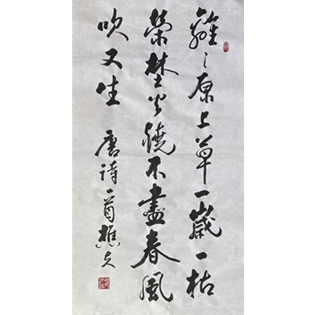 離々原上草一歲一枯
榮埜火燒不盡春風
吹又生 唐詩一首